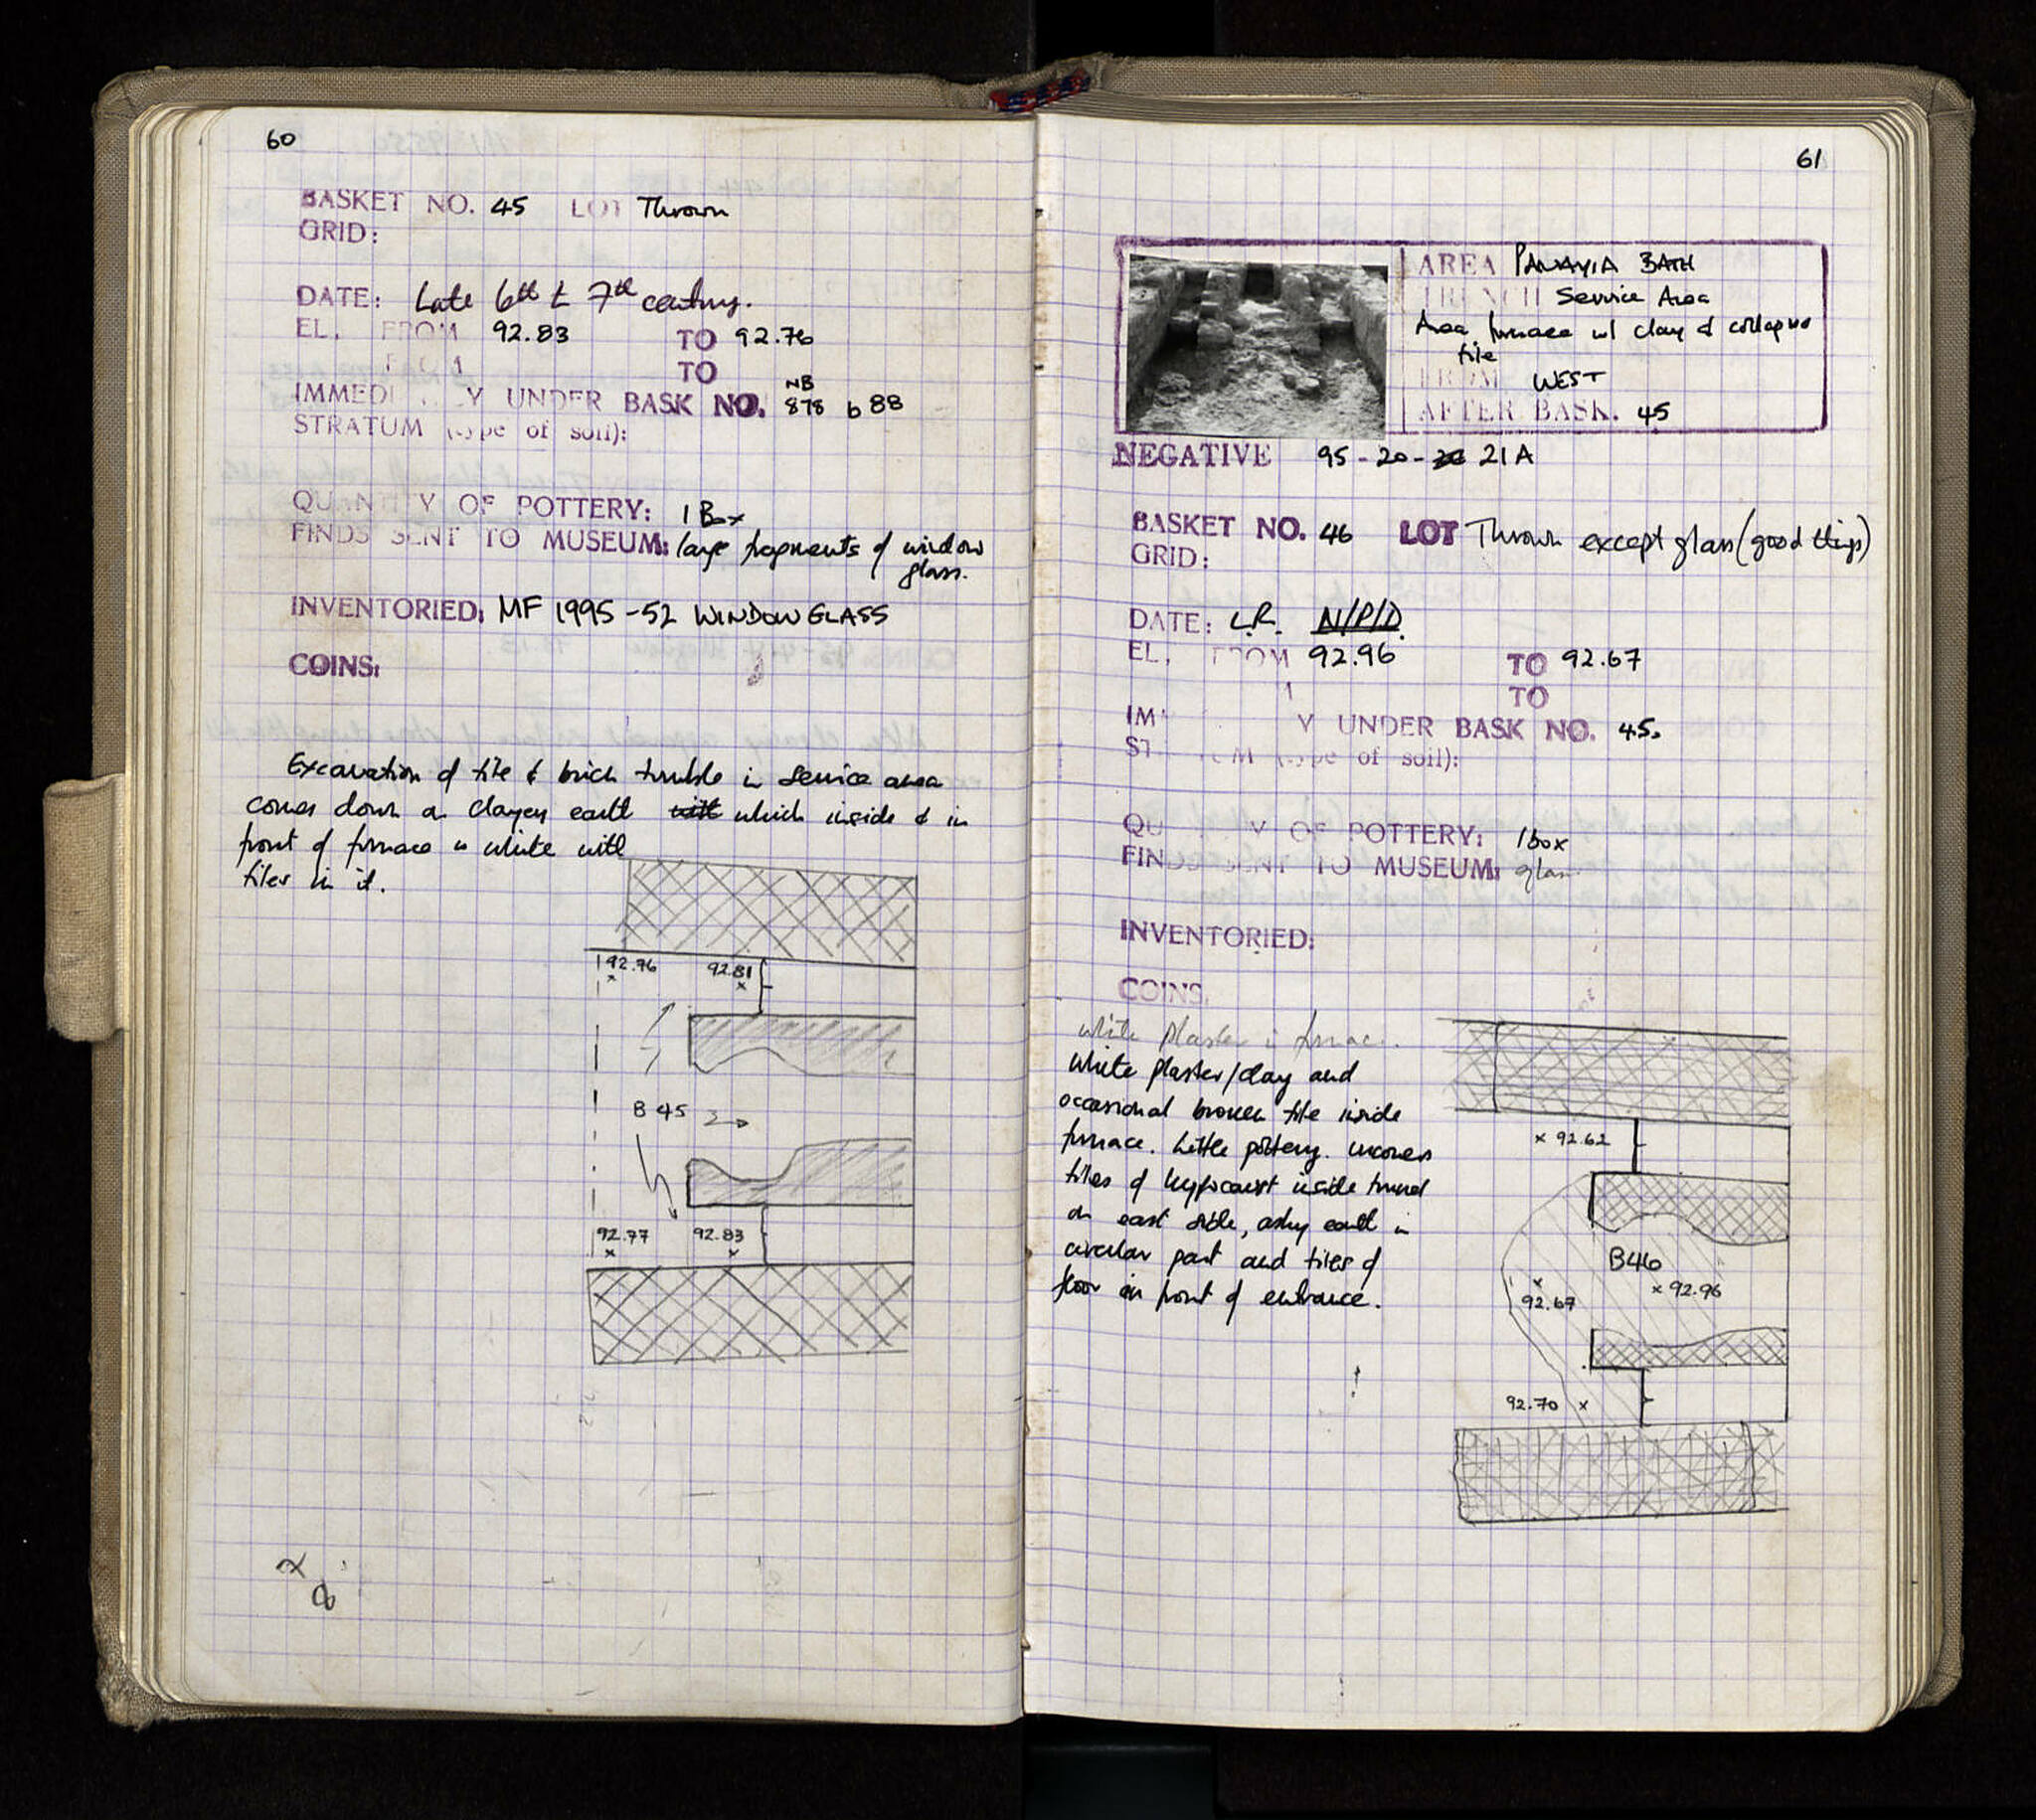 60
BASKET NO. 45 LOT Thrown
GRID:
DATE: Late 6th t 7th century.
EL. FROM 92.83 TO 92.76
TO
NB
IMMEDI Y UNDER BASK NO. 878 b 88
STRATUM (type of soil):
QUANTITY OF POTTERY: 1 Box
FINDS SENT TO MUSEUM: large fragments of window
glass.
INVENTORIED: MF 1995-52 WINDOW GLASS
COINS:
Excavation of tile & brick tumble in service area
comes down on clayey earth with which inside & in
front of furnace is white with
tiles in it.
92.76 92.81
B 45
92.77 92.83
61
AREA PANAYIA BATH
TRENCH Service Area
Area furnace w/ clay & collapse
tile
FROM WEST
AFTER BASK. 45
NEGATIVE 95-20- 21A
BASKET NO. 46 LOT Thrown except glass (good things)
GRID:
DATE: L.R. N/P/D.
EL. FROM 92.96 TO 92.67
TO
IM Y UNDER BASK NO. 45.
ST M (type of soil):
QU Y OF POTTERY: 1 box
FINDS SENT TO MUSEUM: glass
INVENTORIED:
COINS.
white plaster in furnac
White plaster/clay and
occasional broken tile inside
furnace. Little pottery. uncovers
tiles of hypocaust inside tunnel
on east side, ashy earth in
circular part and tiles of
floor in front of entrance.
x 92.62
B46
x 92.96
92.67
92.70 x